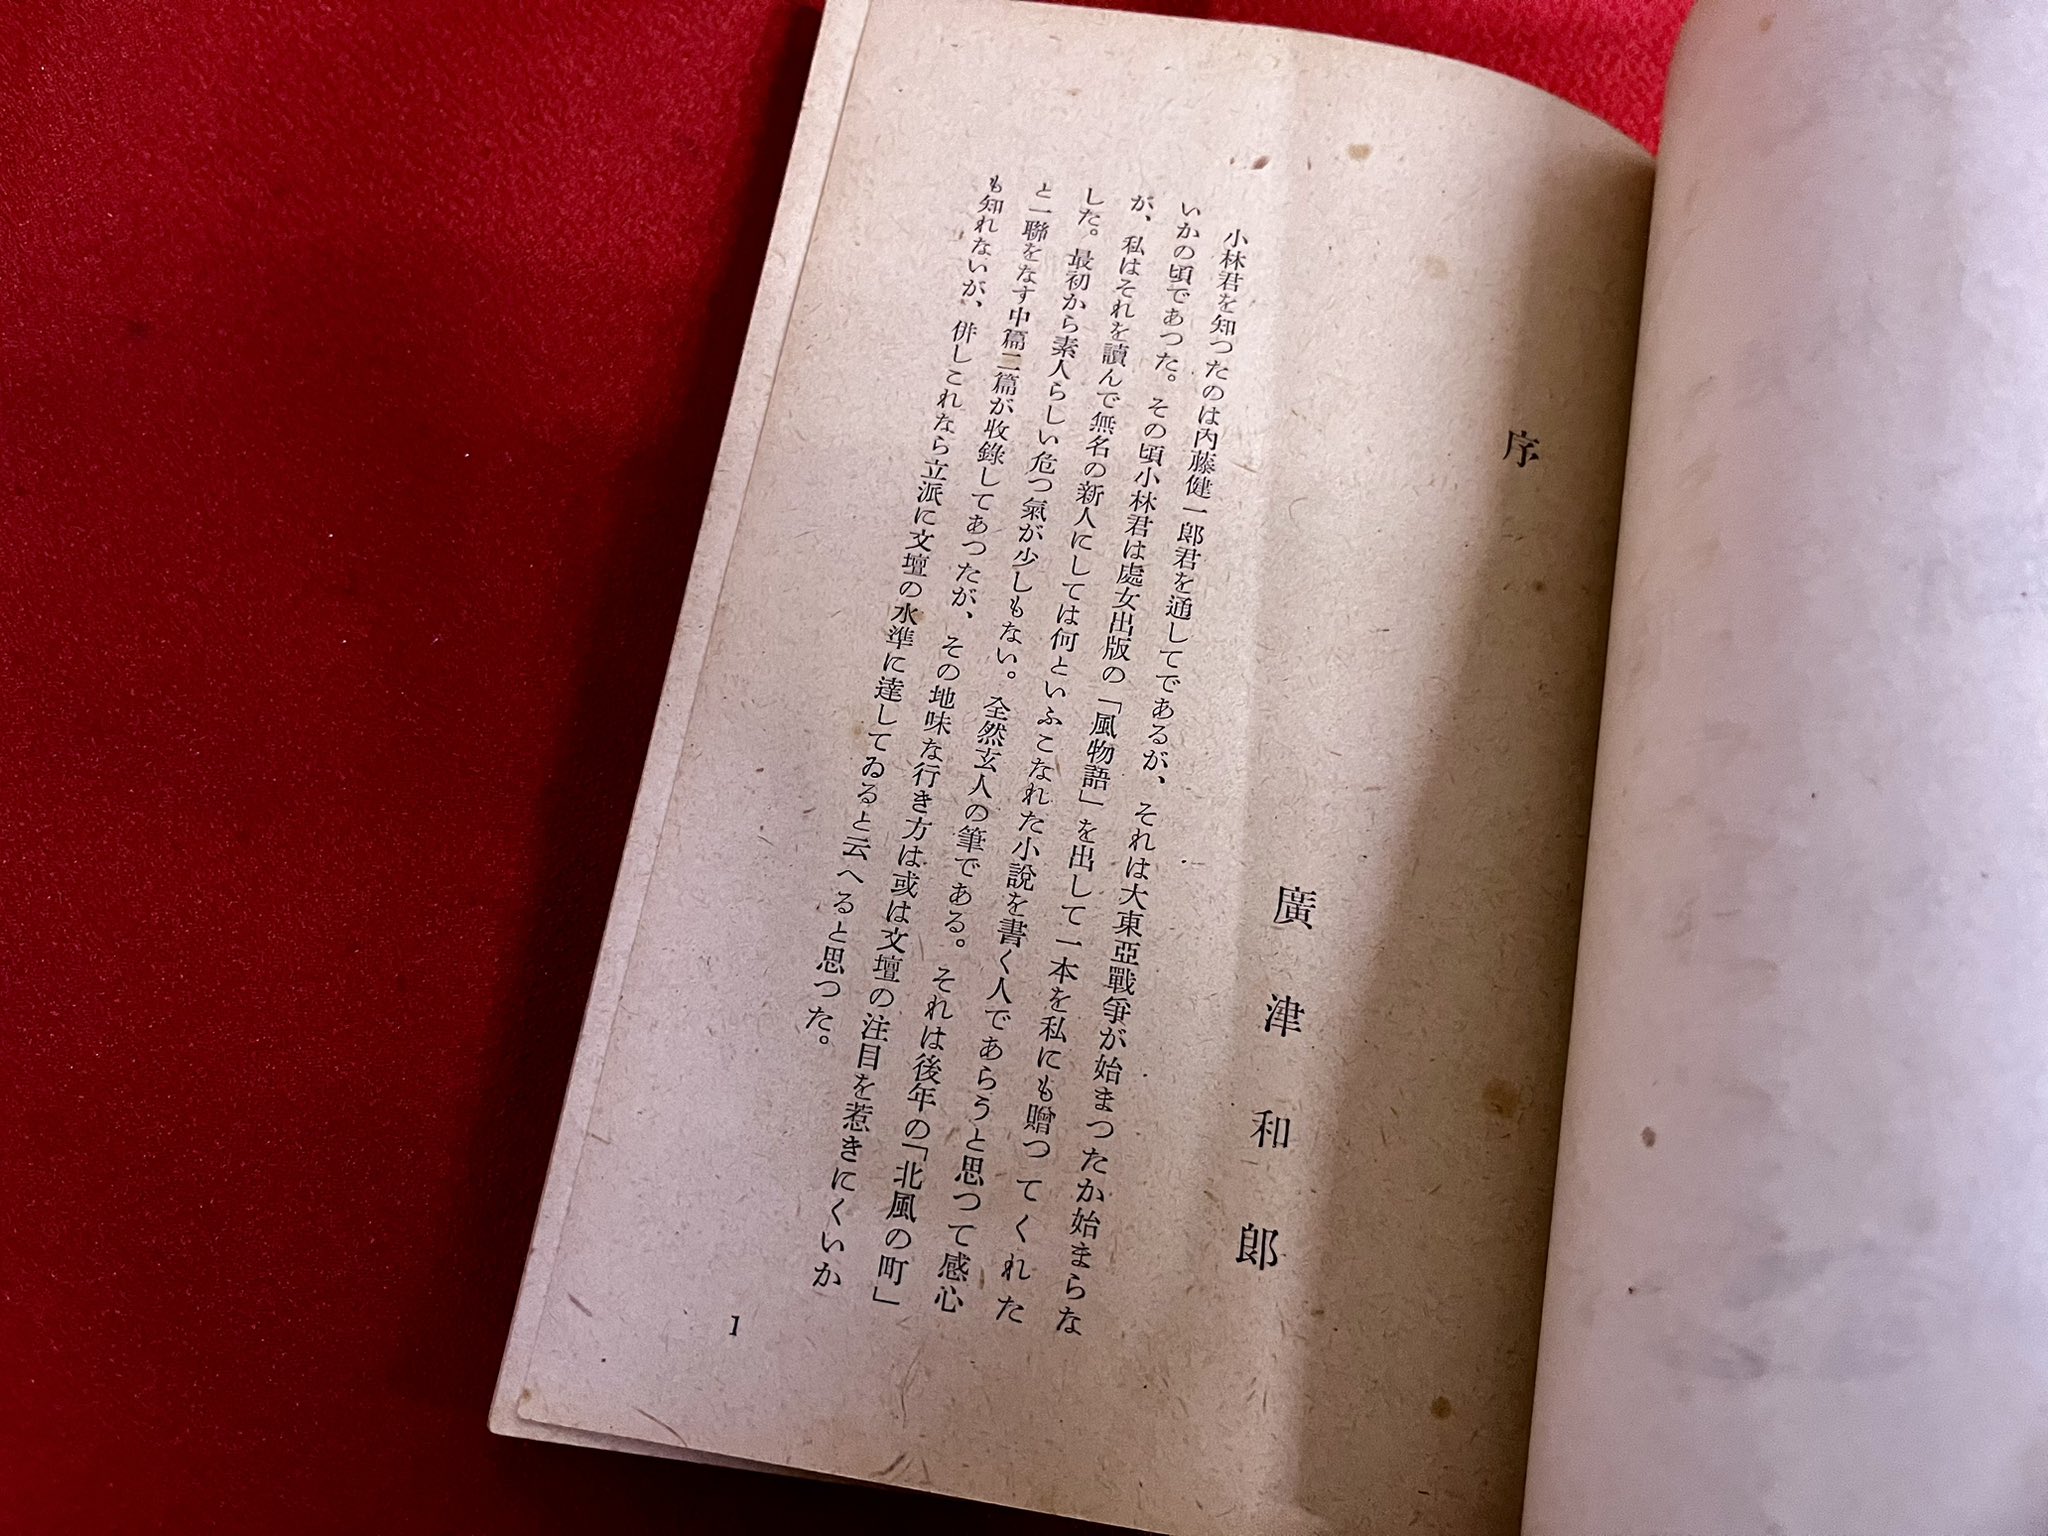 序
廣津和郎
小林君を知つたのは内藤健一郎君を通してであるが、それは大東亞戰爭が始まつたか始まらな
いかの頃であつた。その頃小林君は處女出版の「風物語」を出して一本を私にも贈つてくれた
が、私はそれを讀んで無名の新人にしては何といふこなれた小說を書く人であらうと思つて感心
した。最初から素人らしい危つ氣が少しもない。全然玄人の筆である。それは後年の「北風の町」
と一聯をなす中篇二篇が收錄してあつたが、その地味な行き方は或は文壇の注目を惹きにくいか
も知れないが、併しこれなら立派に文壇の水準に達してゐると云へると思つた。
1